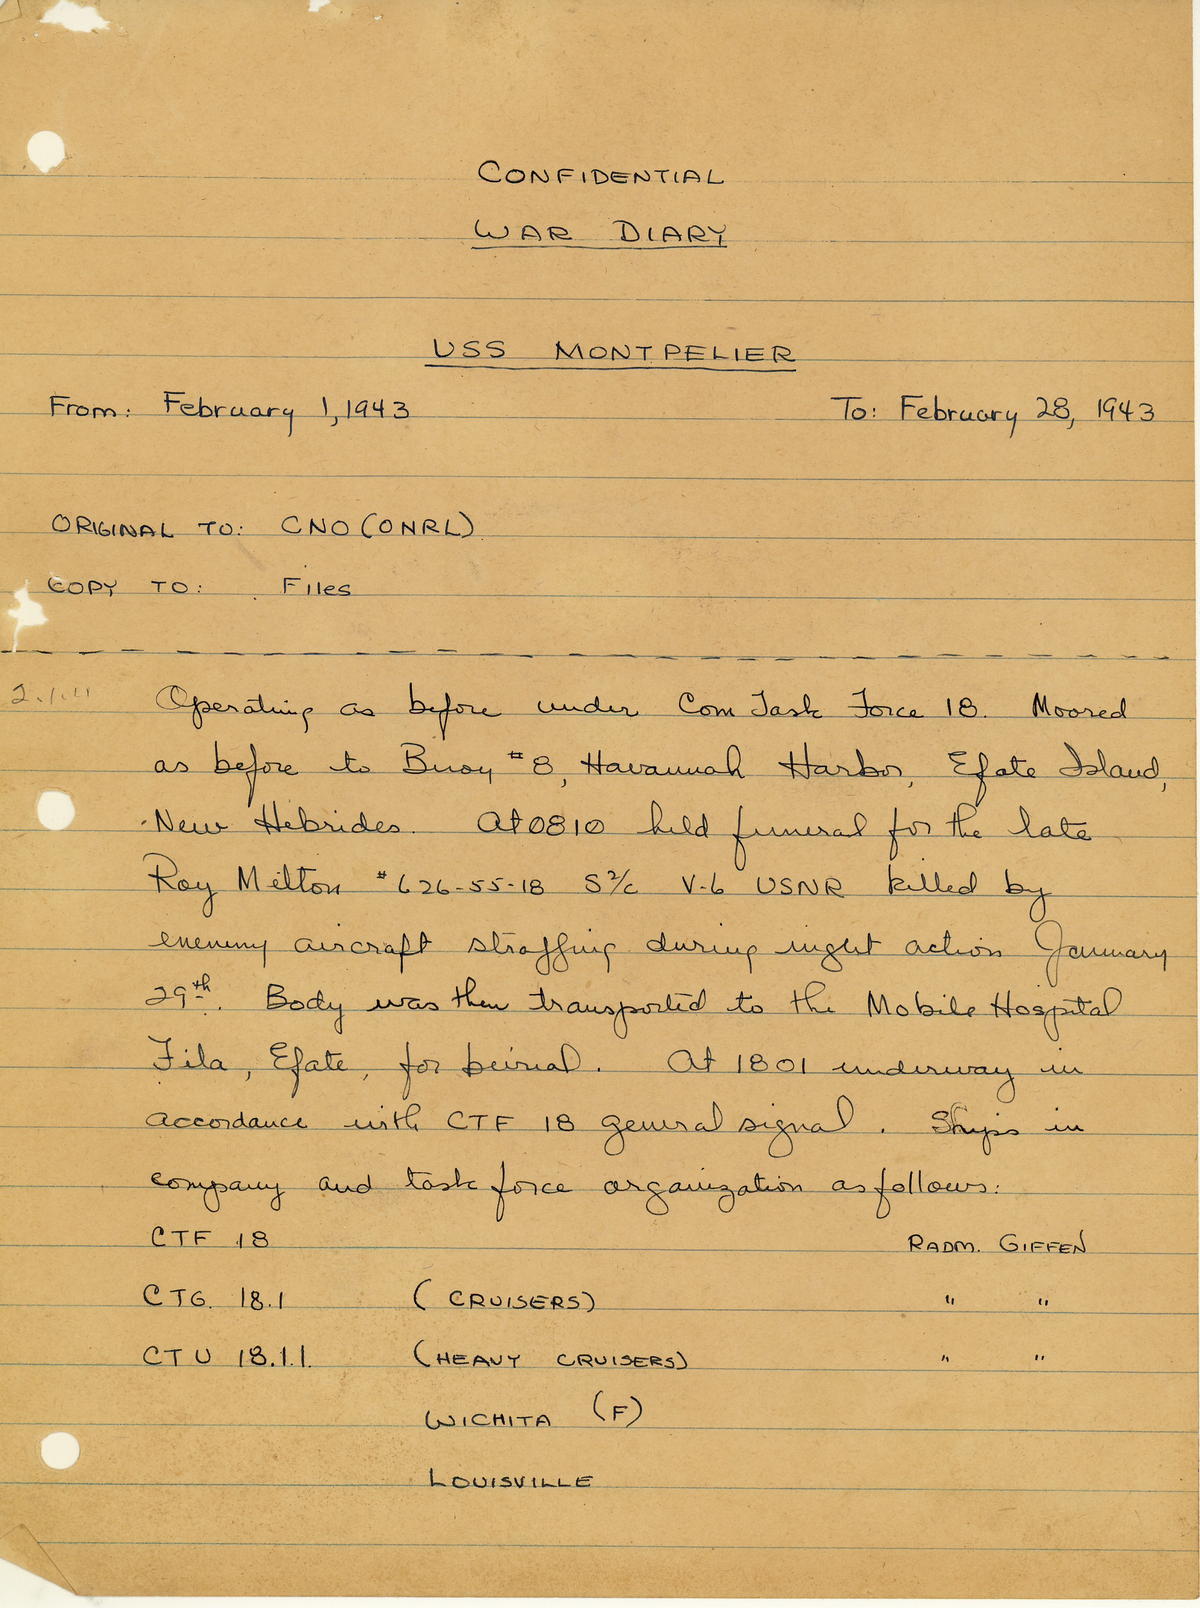 CONFIDENTIAL
WAR DIARY
USS MONTPELIER
From: February 1, 1943 To: February 28, 1943
ORIGINAL TO: CNO (ONRL)
COPY TO: Files
Operating as before under Com Task Force 18. Moored
as before to Buoy #8, Havannah Harbor, Efate Island,
New Hebrides. At 0810 held funeral for the late
Roy Milton #626-55-18 S2/c V-6 USNR killed by
enemy aircraft straffing during night action January
29th. Body was then transported to the Mobile Hospital
Fila, Efate, for beurial. At 1801 underway in
accordance with CTF 18 general signal. Ships in
company and task force organization as follows:
CTF 18 RADM. GIFFEN
CTG. 18.1 (CRUISERS) " "
CTU 18.1.1. (HEAVY CRUISERS) " "
WICHITA (F)
LOUISVILLE